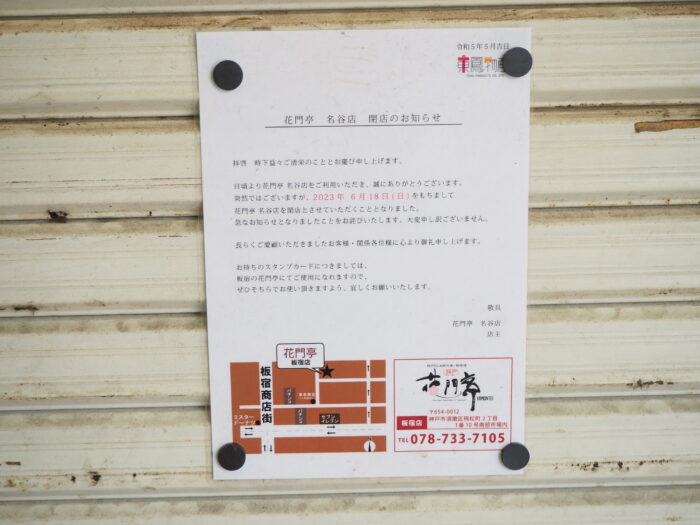 令和5年5月吉日
東鳳物産
花門亭　名谷店　閉店のお知らせ
拝啓　時下益々ご清栄のこととお慶び申し上げます。
日頃より花門亭 名谷店をご利用いただき、誠にありがとうございます。
突然ではございますが、2023年 6月18日(日)をもちまして
花門亭 名谷店を閉店とさせていただくこととなりました。
急なお知らせとなりましたことをお詫びいたします。大変申し訳ございません。
長らくご愛顧いただきましたお客様・関係各位様に心より御礼申し上げます。
お持ちのスタンプカードにつきましては、
板宿の花門亭にてご使用になれますので、
ぜひそちらでお使い頂きますよう、宜しくお願いいたします。
敬具
花門亭　名谷店
店主
花門亭
板宿店
板宿商店街
パチンコ
パチンコ
セブンイレブン
ミスタードーナツ
花門亭
KAMONTEI
板宿店
〒654-0012
神戸市須磨区飛松町2丁目
1番10号南部市場内
TEL 078-733-7105